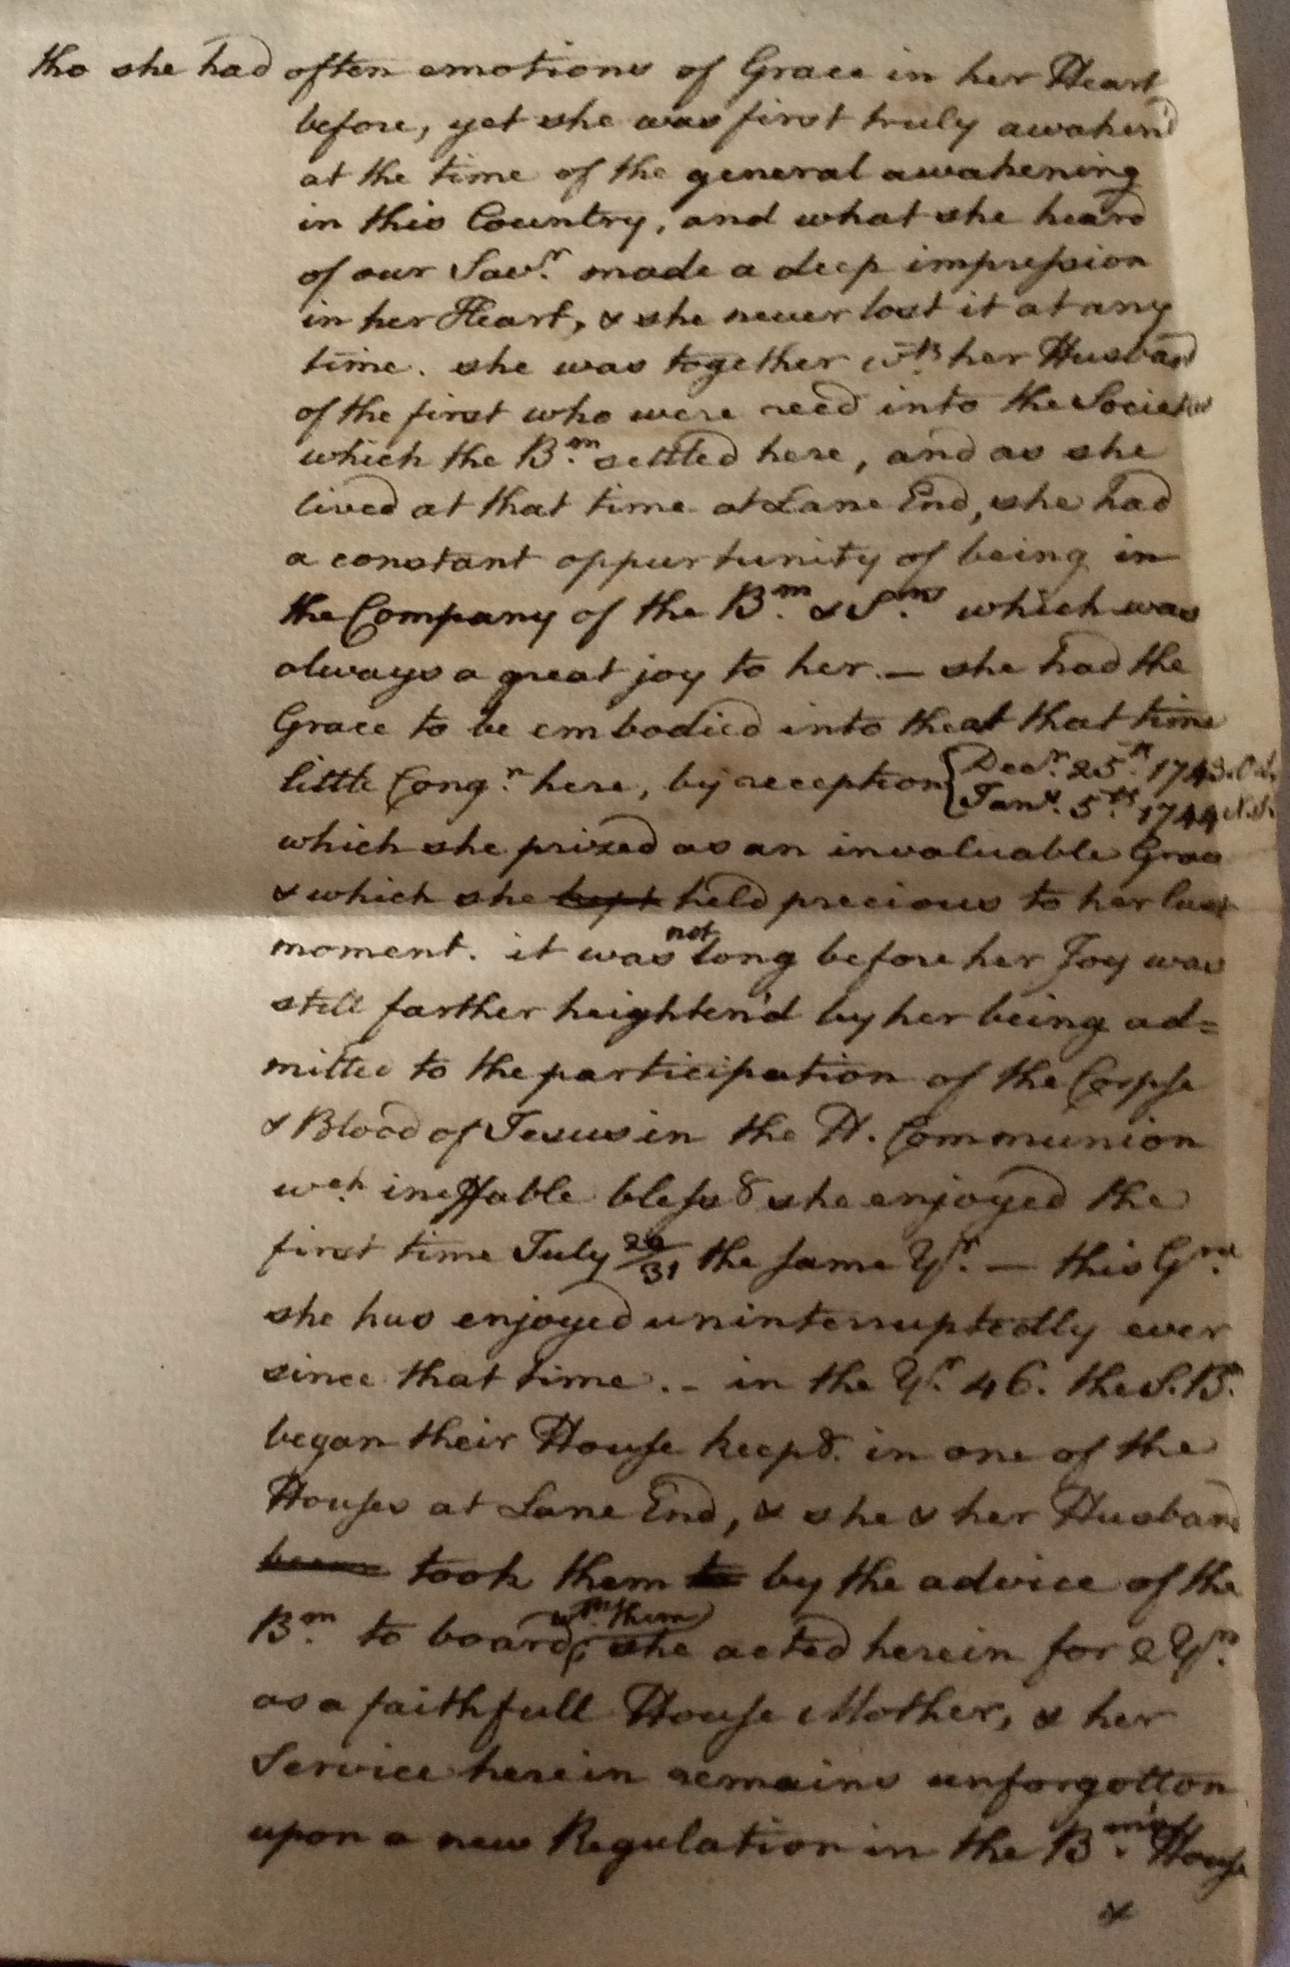 tho she had often emotions of Grace in her Heart
before, yet she was first truly awaken'd
at the time of the general awakening
in this Country, and what she heard
of our Savr. made a deep impression
in her Heart, & she never lost it at any
time. she was together wth her Husband
of the first who were recd into the Societies
which the Brn. settled here, and as she
lived at that time at Lane End, she had
a constant oppurtunity of being in
the Company of the Bm. & Sms. which was
always a great joy to her. — she had the
Grace to be embodied into the at that time
little Congn. here, by reception { Decr. 25th. 1743. O.S.
Jany. 5th. 1744 N.S.
which she prized as an invaluable Grace
& which she kept held precious to her last
moment. it was not long before her Joy was
still farther heighten'd by her being ad=
mitted to the participation of the Corpse
& Blood of Jesus in the H. Communion
wch. ineffable blessg she enjoyed the
first time July 20/31 the same Yr. — this Gra.
she has enjoyed uninterruptedly ever
since that time. - in the Yr. 46. the S. Bn.
began their House keepg. in one of the
Houses at Lane End, & she & her Husband
took them to by the advice of the
Bm. to board, wth. them she acted herein for 2 Yrs.
as a faithfull House Mother, & her
Service herein remains unforgotton
upon a new Regulation in the Bm's. House
&